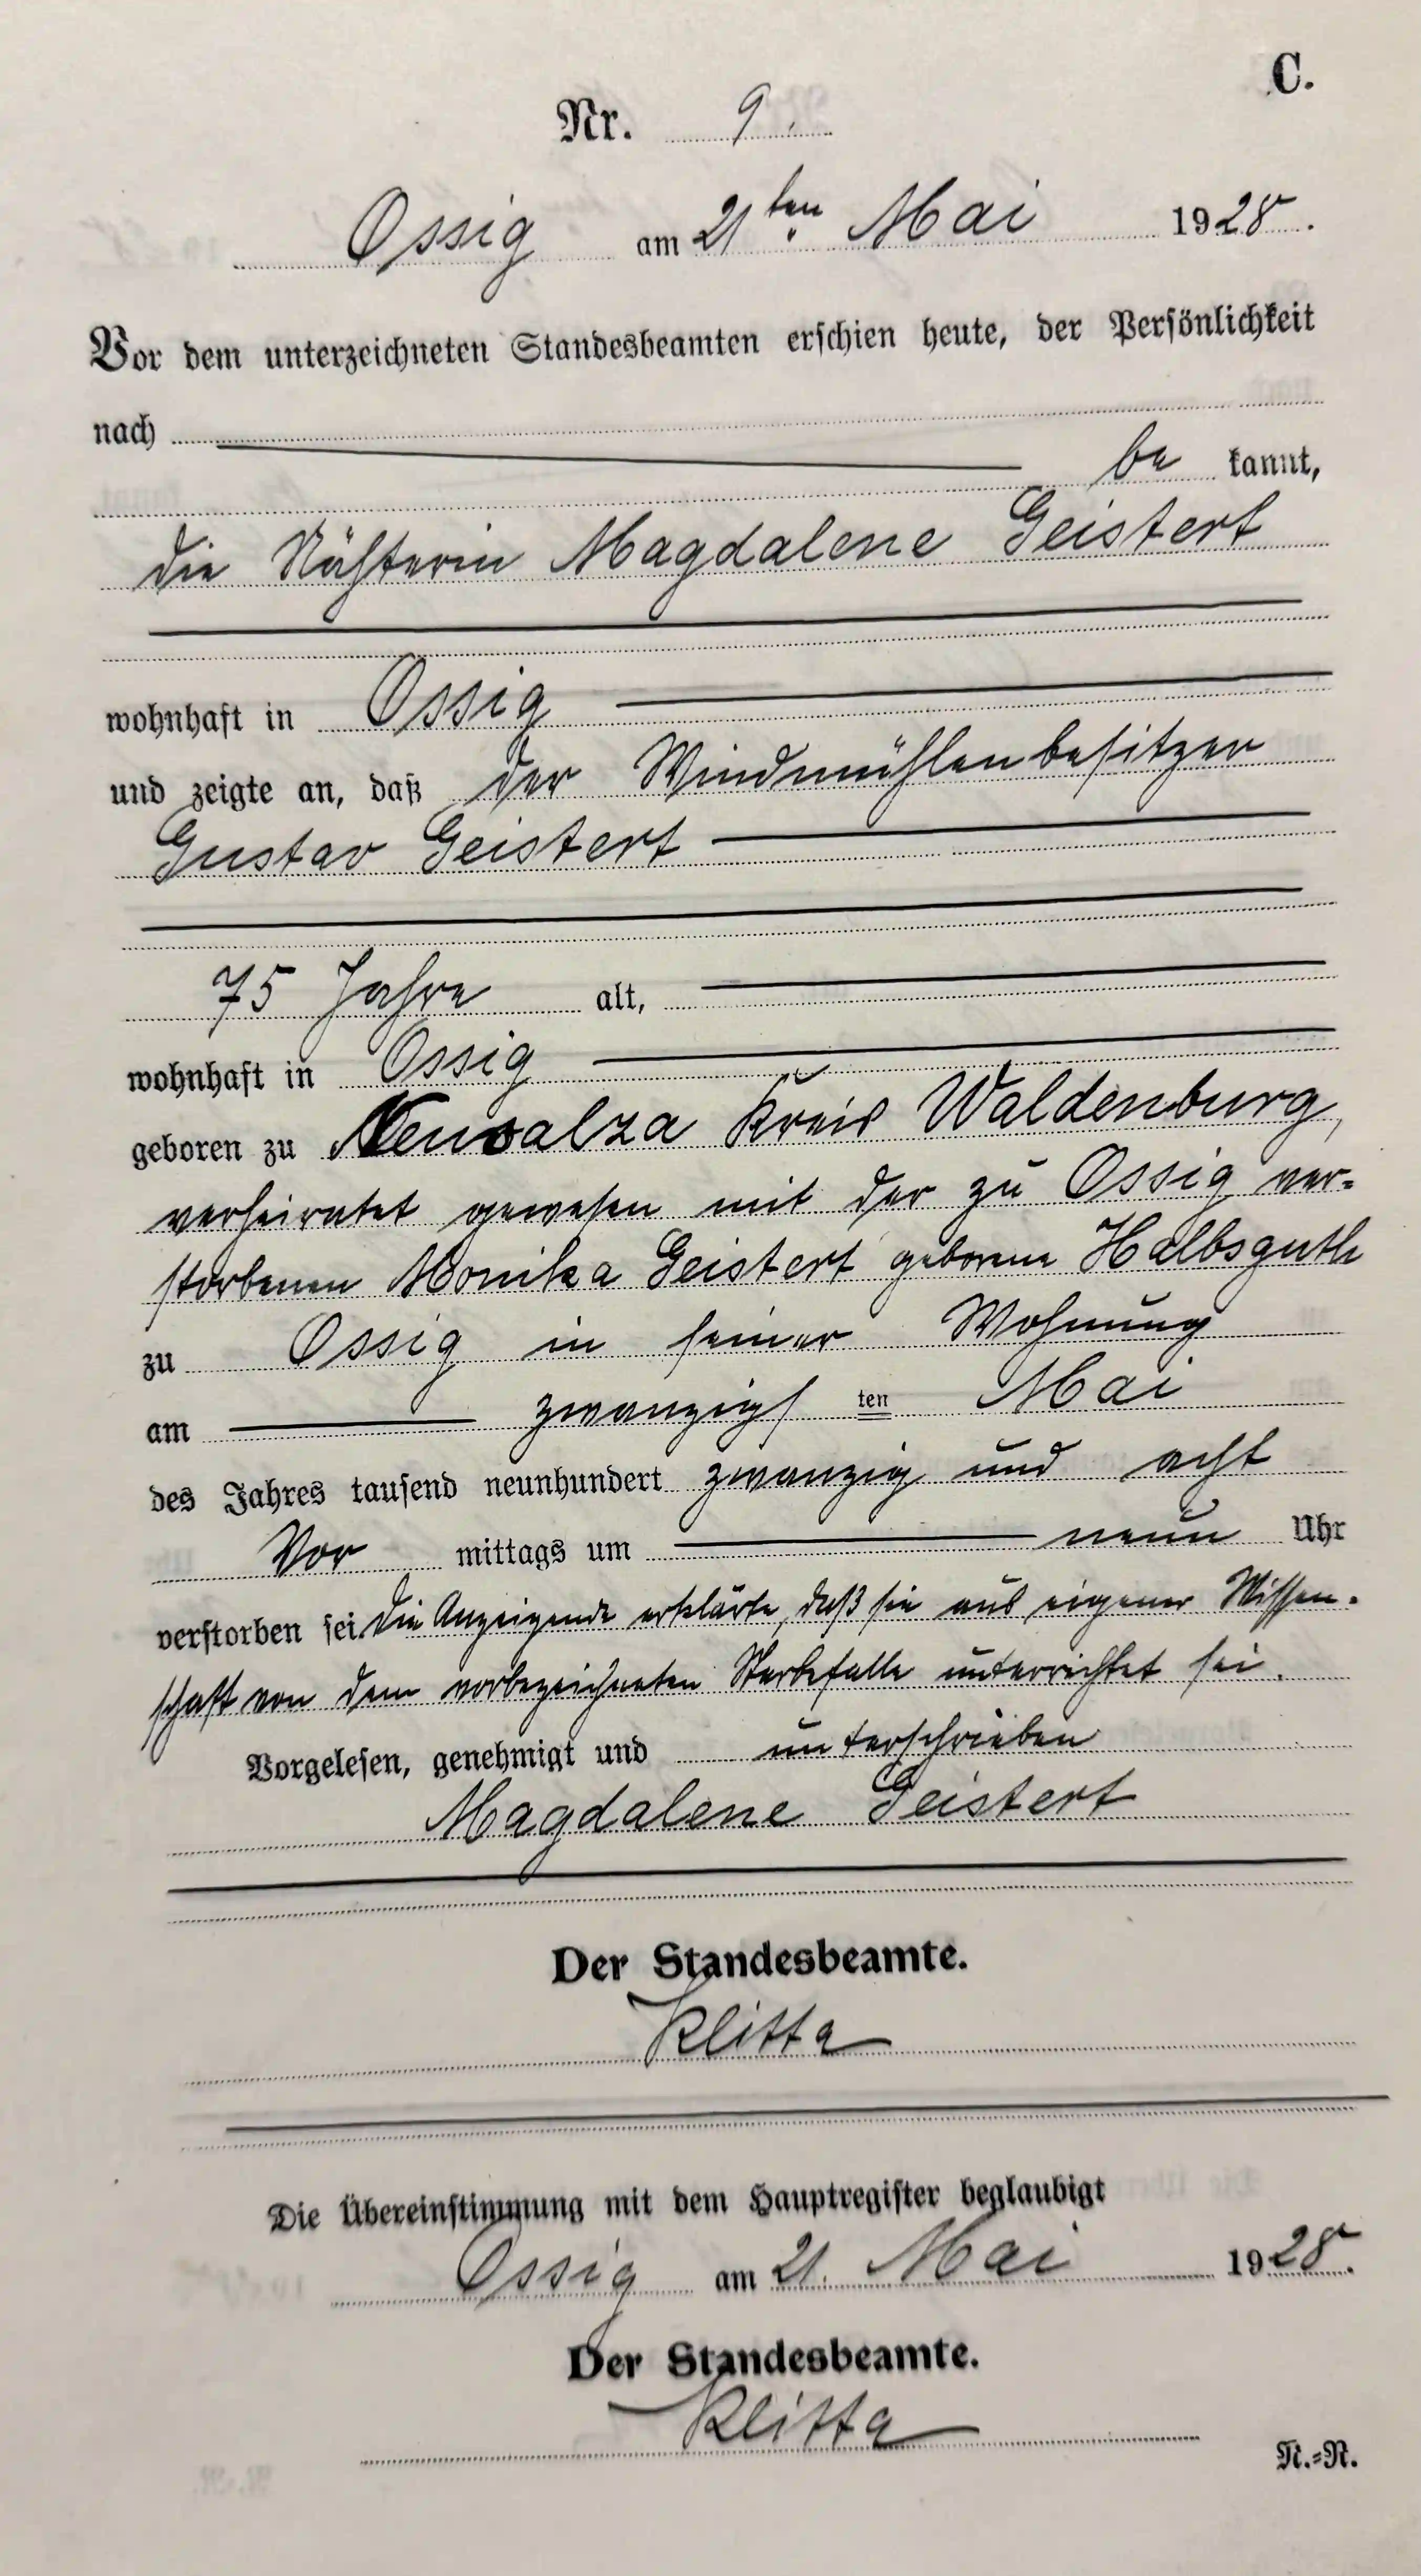 C.
Nr. 9.
Ossig am 21ten Mai 1928.
Vor dem unterzeichneten Standesbeamten erschien heute, der Persönlichkeit
nach
be kannt,
die Nähterin Magdalene Geistert
wohnhaft in Ossig
und zeigte an, daß der Windmühlenbesitzer
Gustav Geistert
75 Jahre alt,
wohnhaft in Ossig
geboren zu Neusalza Kreis Waldenburg,
verheiratet gewesen mit der zu Ossig ver-
storbenen Monika Geistert geborene Halbsguth
zu Ossig in seiner Wohnung
am zwanzigs ten Mai
des Jahres tausend neunhundert zwanzig und acht
Vor mittags um neun Uhr
verstorben sei. Die Anzeigende erklärte, daß sie aus eigener Wissen-
schaft von dem vorbezeichneten Sterbefalle unterrichtet sei.
Vorgelesen, genehmigt und unterschrieben
Magdalene Geistert
Der Standesbeamte.
Klitta
Die Übereinstimmung mit dem Hauptregister beglaubigt
Ossig am 21. Mai 1928.
Der Standesbeamte.
Klitta
N.=R.